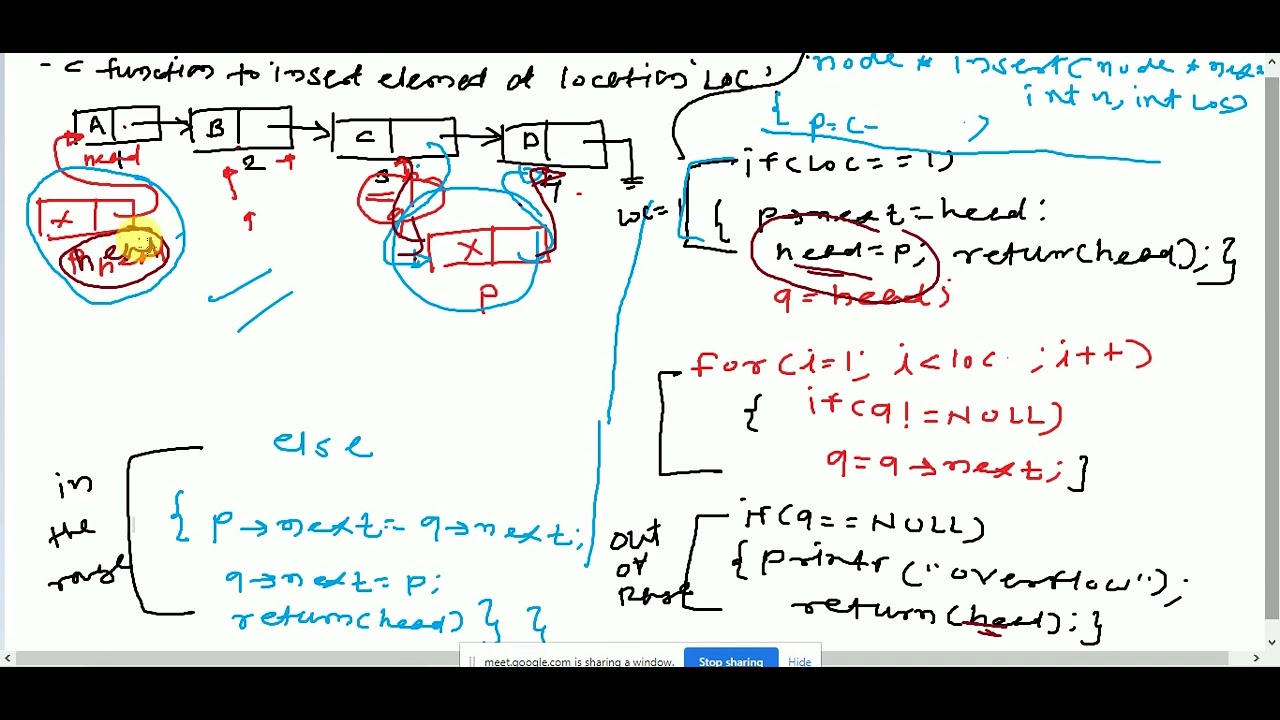 - C function to insert element at location 'LOC'
node * Insert( node *
int n, int Loc)
{ p=c- )
A B C D
head 2 3 4
X
X
P
q
if(loc==1)
Loc=1
{ p→next=head;
head=p; return(head);}
q=head;
for(i=1; i<loc ; i++)
{ if(q!=NULL)
q=q→next; }
if(q==NULL)
out
of
Range
{printf("overflow");
return(head);}
in
the
range
else
{ p→next=q→next;
q→next=p;
return(head)} }
meet.google.com is sharing a window. Stop sharing Hide